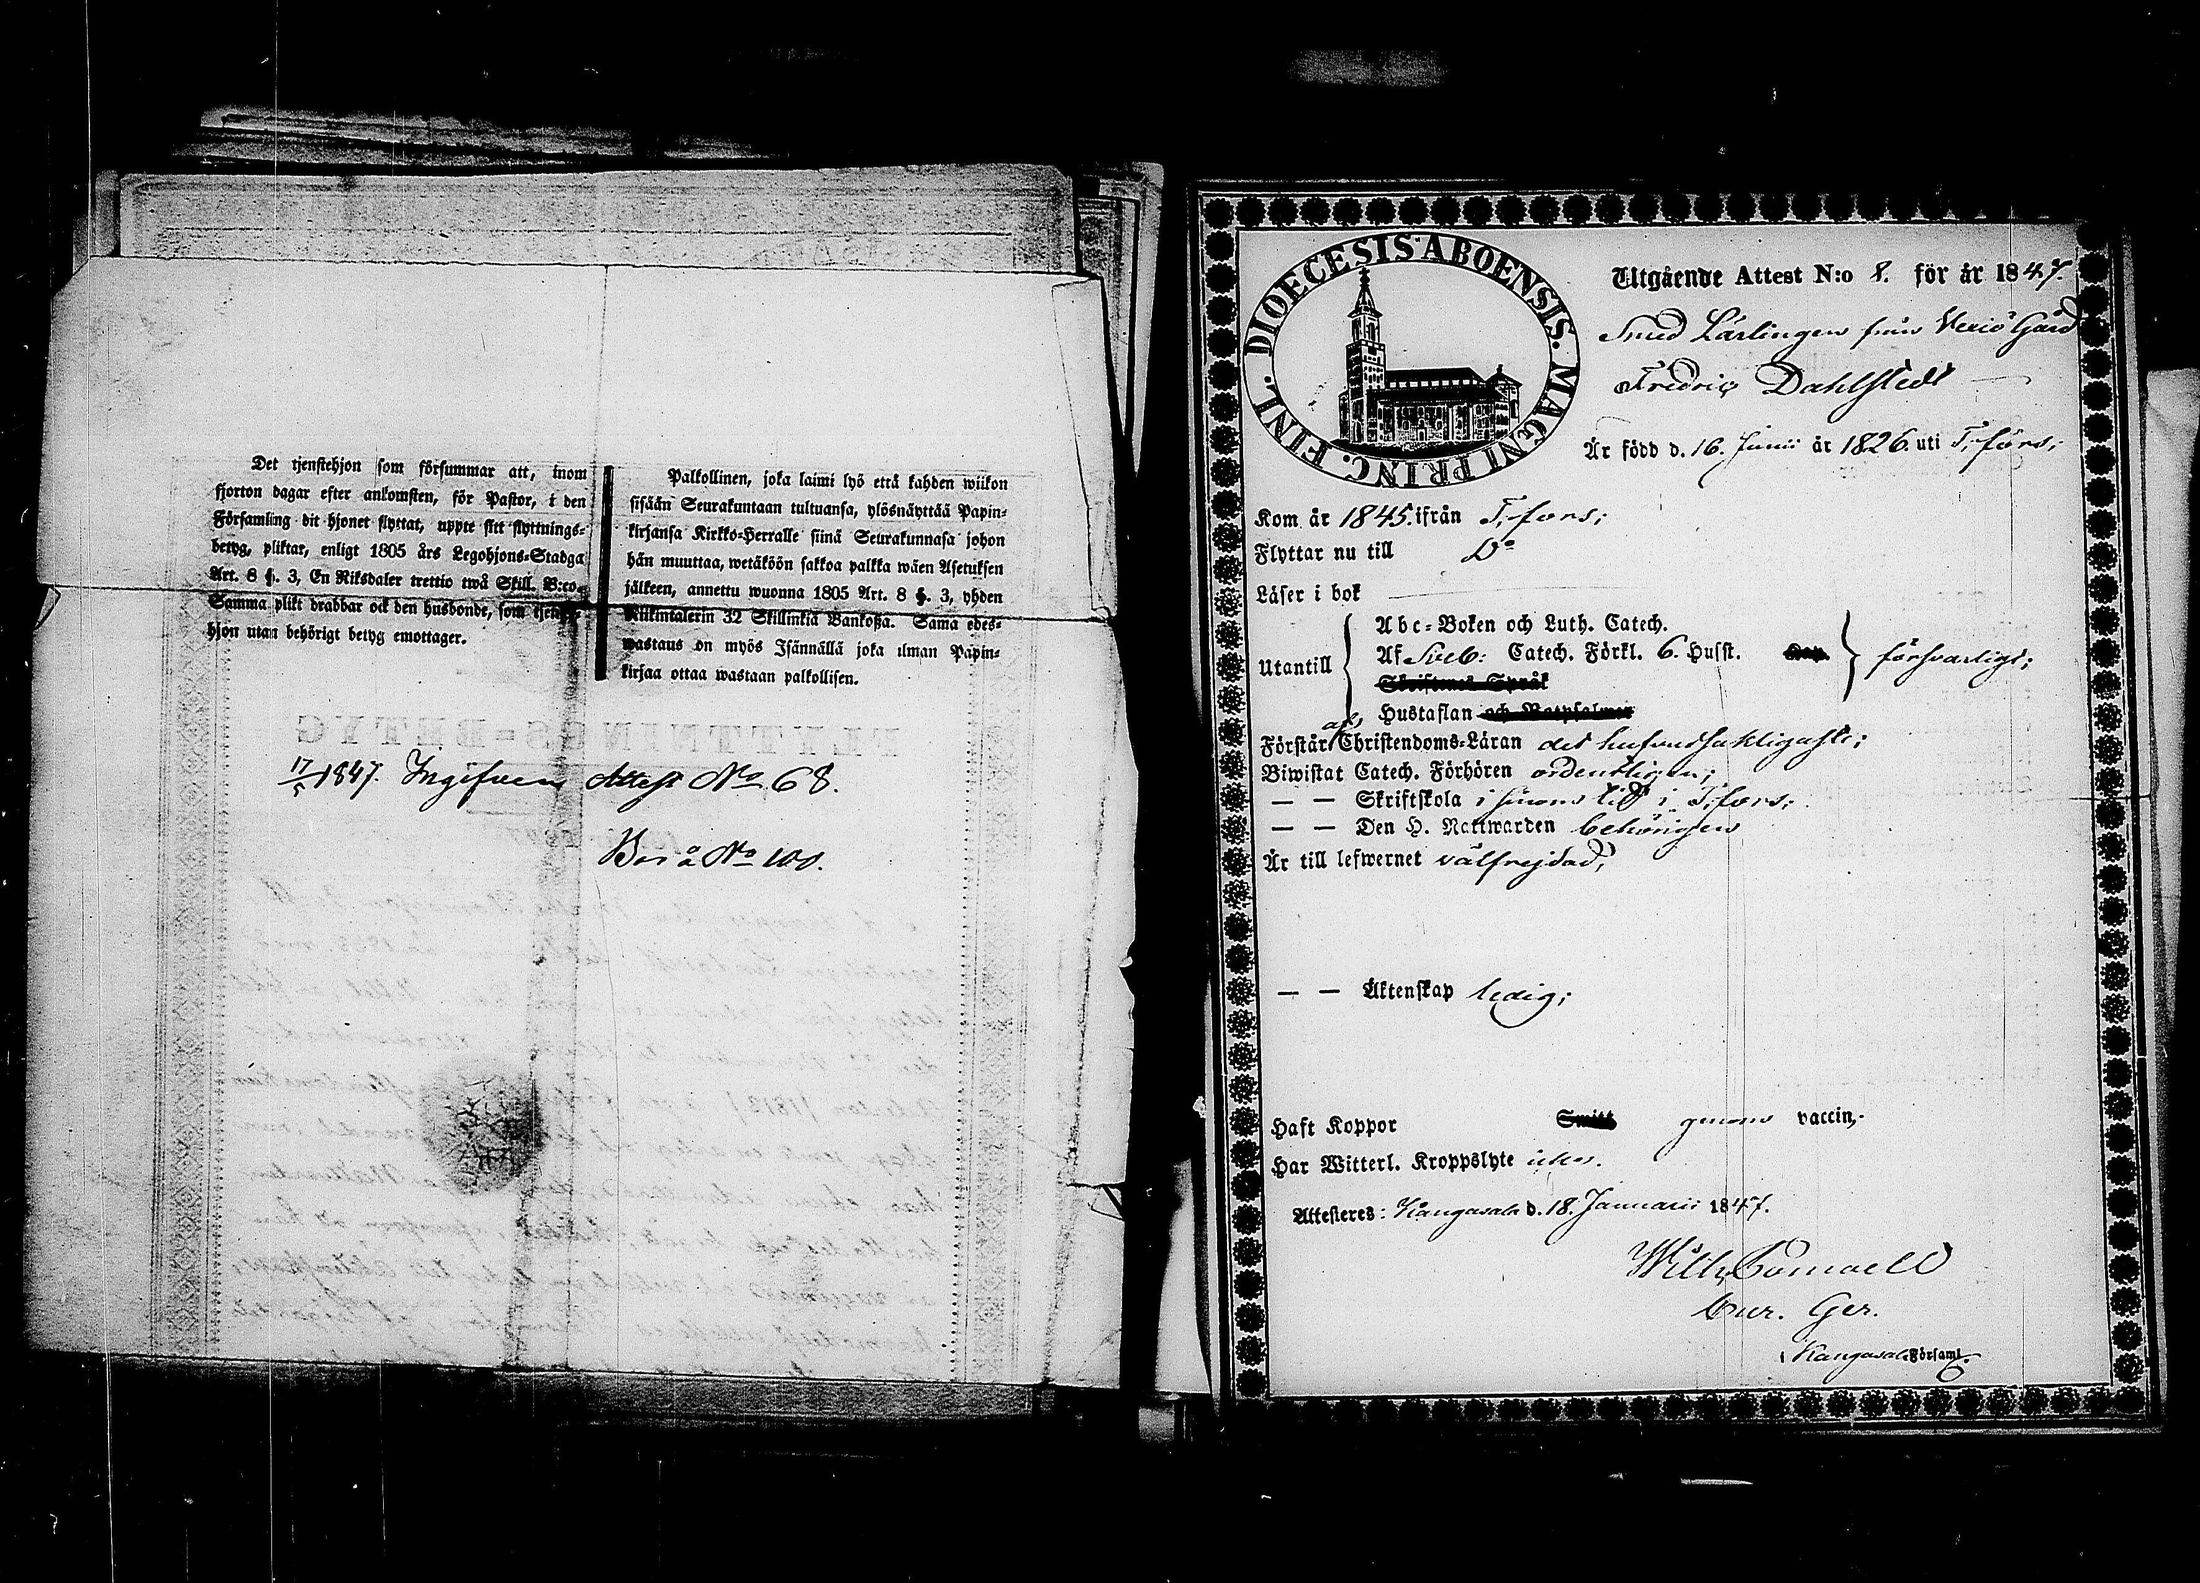 Det tjenstehjon som försummar att, inom
fjorton dagar efter ankomsten, för Pastor, i den
Församling dit hjonet flyttat, uppte sitt flyttnings-
betyg, pliktar, enligt 1805 års Legohjons-Stadga
Art. 8 §. 3, En Riksdaler trettio twå Skill. B:co.
Samma plikt drabbar ock den husbonde, som tjenste-
hjon utan behörigt betyg emottager.
Palkollinen, joka laimi lyö että kahden wiikon
sisään Seurakuntaan tultuansa, ylösnäyttää Papin-
kirjansa Kirkko-Herralle siinä Seurakunnasa johon
hän muuttaa, wetäköön sakkoa palkka wäen Asetuksen
jälkeen, annettu wuonna 1805 Art. 8 §. 3, yhden
Riikintalerin 32 Skillinkiä Bankoßa. Sama edes-
wastaus on myös Isännällä joka ilman Papin-
kirjaa ottaa wastaan palkollisen.
FLYTTNINGS-BETYG
17/5 1847. Ingifven Attest No 68.
Bor å No 100.
DIOECESIS ABOENSIS. MAGNI PRINC. FINL.
Utgående Attest N:o 8. för år 1847.
Smed Lärlingen från Gård
Fredric Dahlstedt
Är född d. 16. Junii år 1826. uti T:fors;
Kom år 1845. ifrån T:fors;
Flyttar nu till Do
Läser i bok
Utantill
Abc-Boken och Luth. Catech.
Af Sveb: Catech. Förkl. 6. Husst. Kap. försvarligt;
Skriftenes Språk
Hustaflan och Botpsalmer
Förstår af Christendoms-Läran det hufvudsakligaste;
Biwistat Catech. Förhören ordentligen;
— — Skriftskola i sinom tid i T:fors;
— — Den H. Nattwarden behörigen
Är till lefwernet välfrejdad;
— — Äktenskap ledig;
Haft Koppor Smitt genom vaccin,
Har Witterl. Kroppslyte icke.
Attesteres: Kangasala d. 18. Januarii 1847.
Cur. Ger.
i Kangasala Församl.